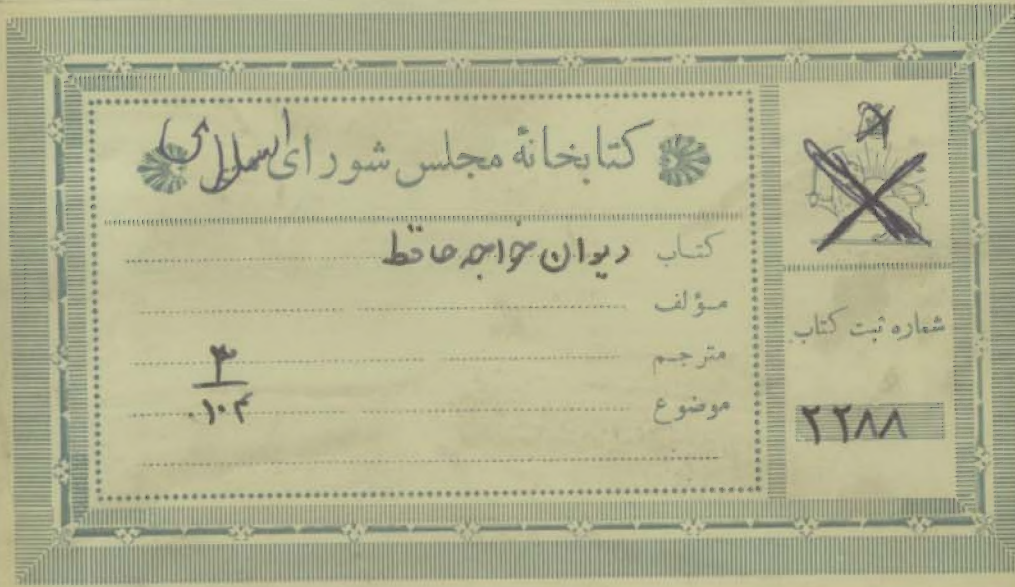 کتابخانهٔ مجلس شورای اسلامی
کتاب دیوان خواجه حافظ
مؤلف
مترجم
موضوع
۳
۰۱۰۴
شماره ثبت کتاب
۲۲۸۸